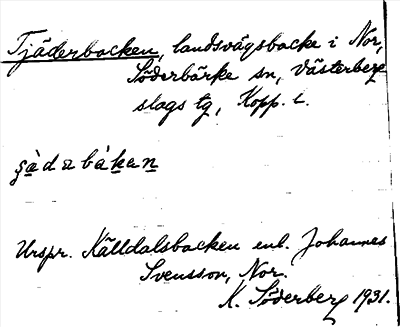 Tjäderbacken, landsvägsbacke i Nor,
Söderbärke sn, Västerberg
slags tg, Kopp. l.
ʂàdabàkan
Urspr. Källdalsbacken enl. Johannes
Svensson, Nor.
K. Söderberg 1931.